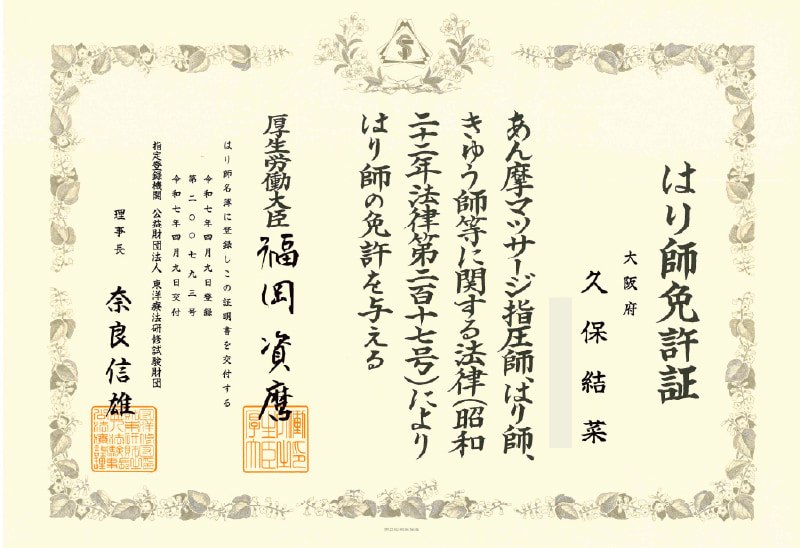 はり師免許証
大阪府
久保結菜
あん摩マツサージ指圧師、はり師、
きゆう師等に関する法律(昭和
二十二年法律第二百十七号)により
はり師の免許を与える
厚生労働大臣 福岡資麿
はり師名簿に登録しこの証明書を交付する
令和七年四月九日登録
第二〇〇七九三号
令和七年四月九日交付
指定登録機関 公益財団法人 東洋療法研修試験財団
理事長 奈良信雄